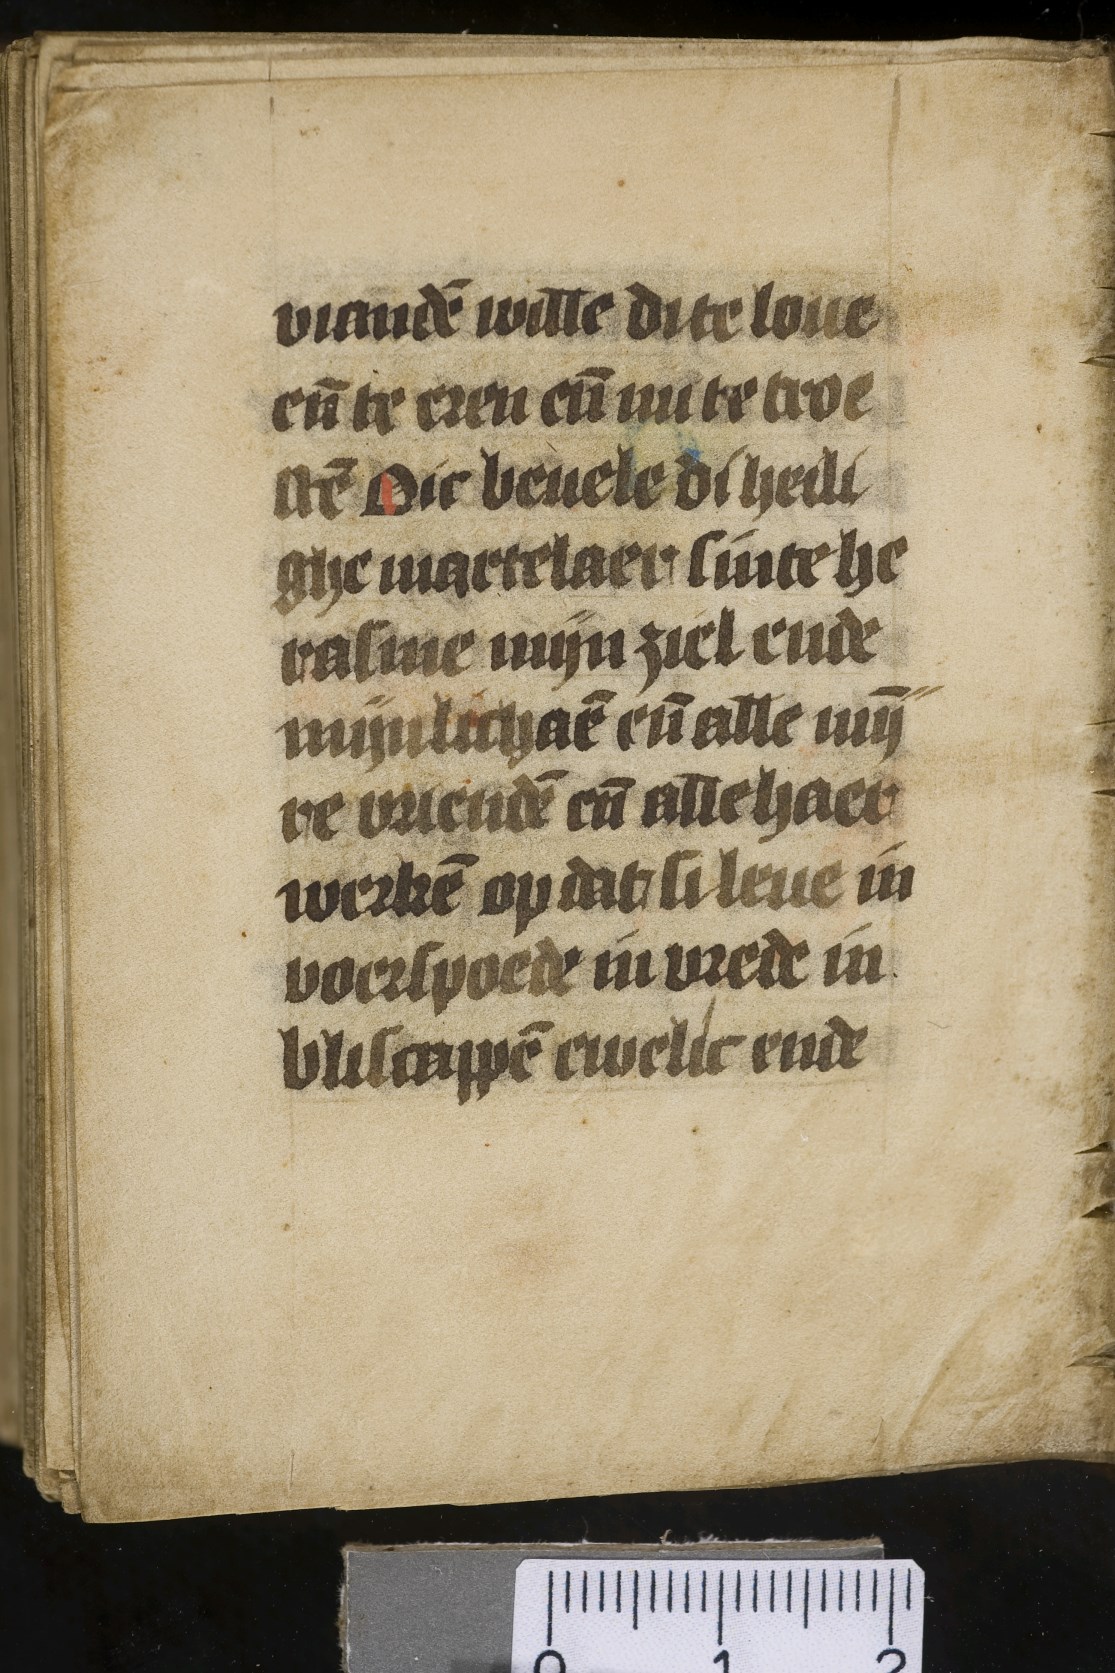 viandē wille di te loue
eñ te eren eñ mi te troe
stē Dic beuele di heili
ghe martelaer sinte he
rasme mijn ziel ende
mijn lichaē eñ alle mij̄
re vriendē eñ alle haer
werkē op dat si leue in
voerspoede in vrede in
bliscappē ewelic ende
0 1 2